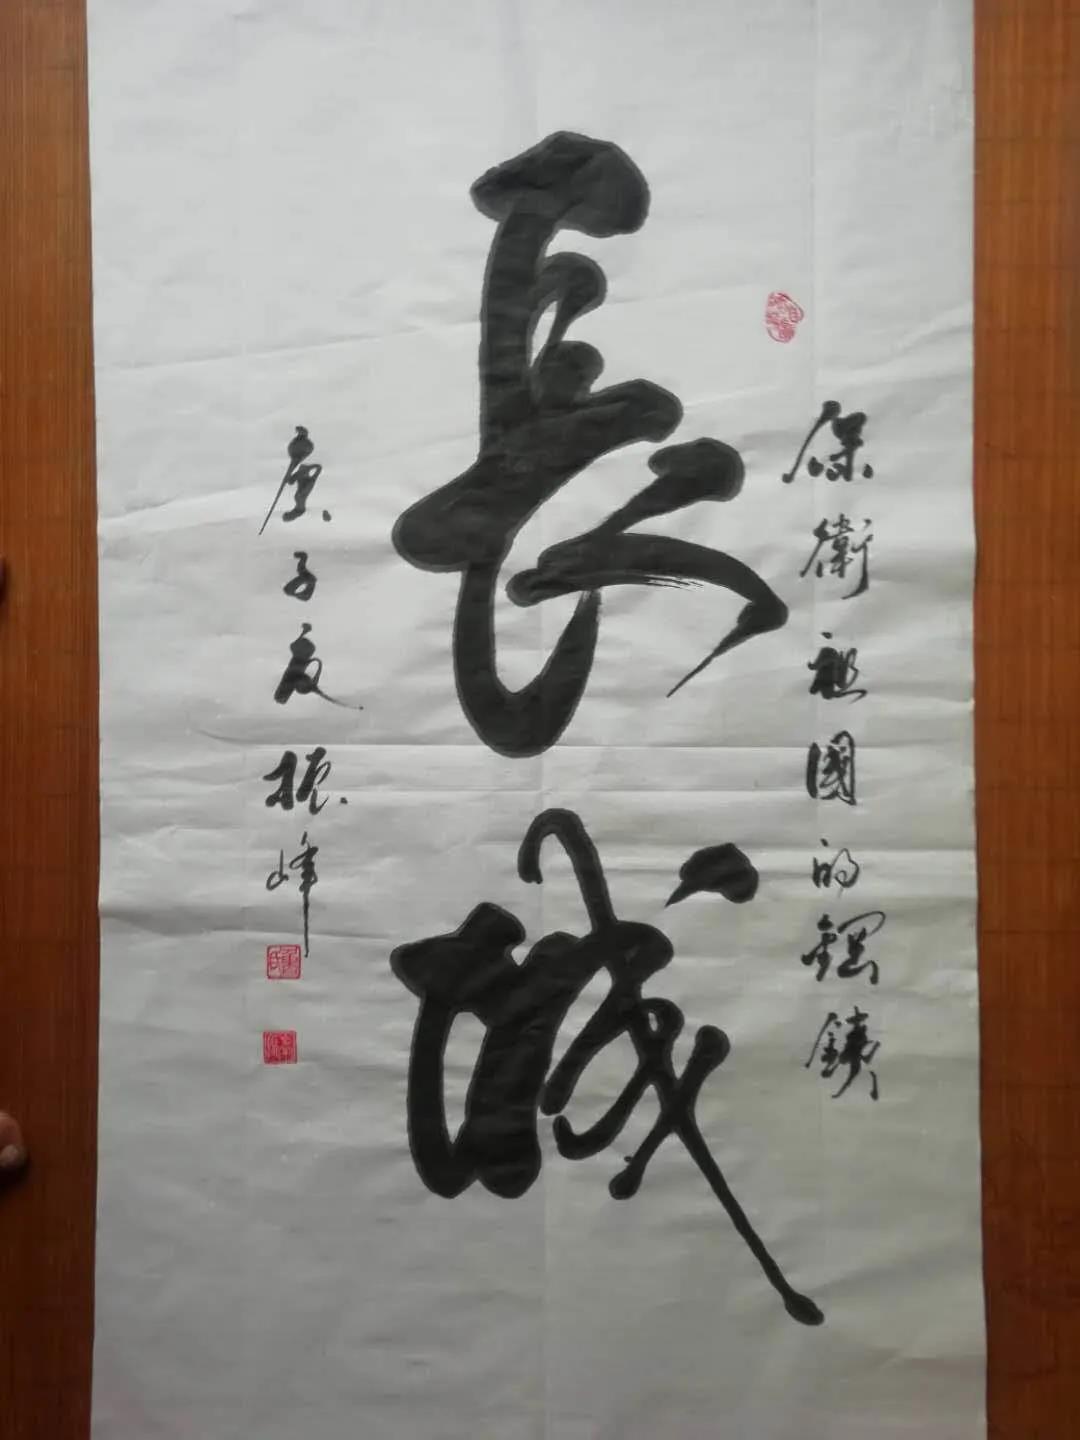 保衛祖國的鋼鐵
長城
庚子夏振峰